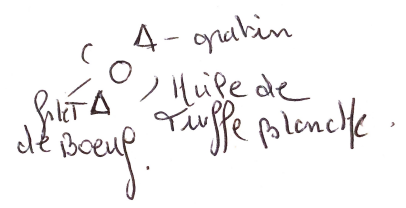 Δ - gratin
Huile de
Truffe Blanche.
filet Δ
de Boeuf.